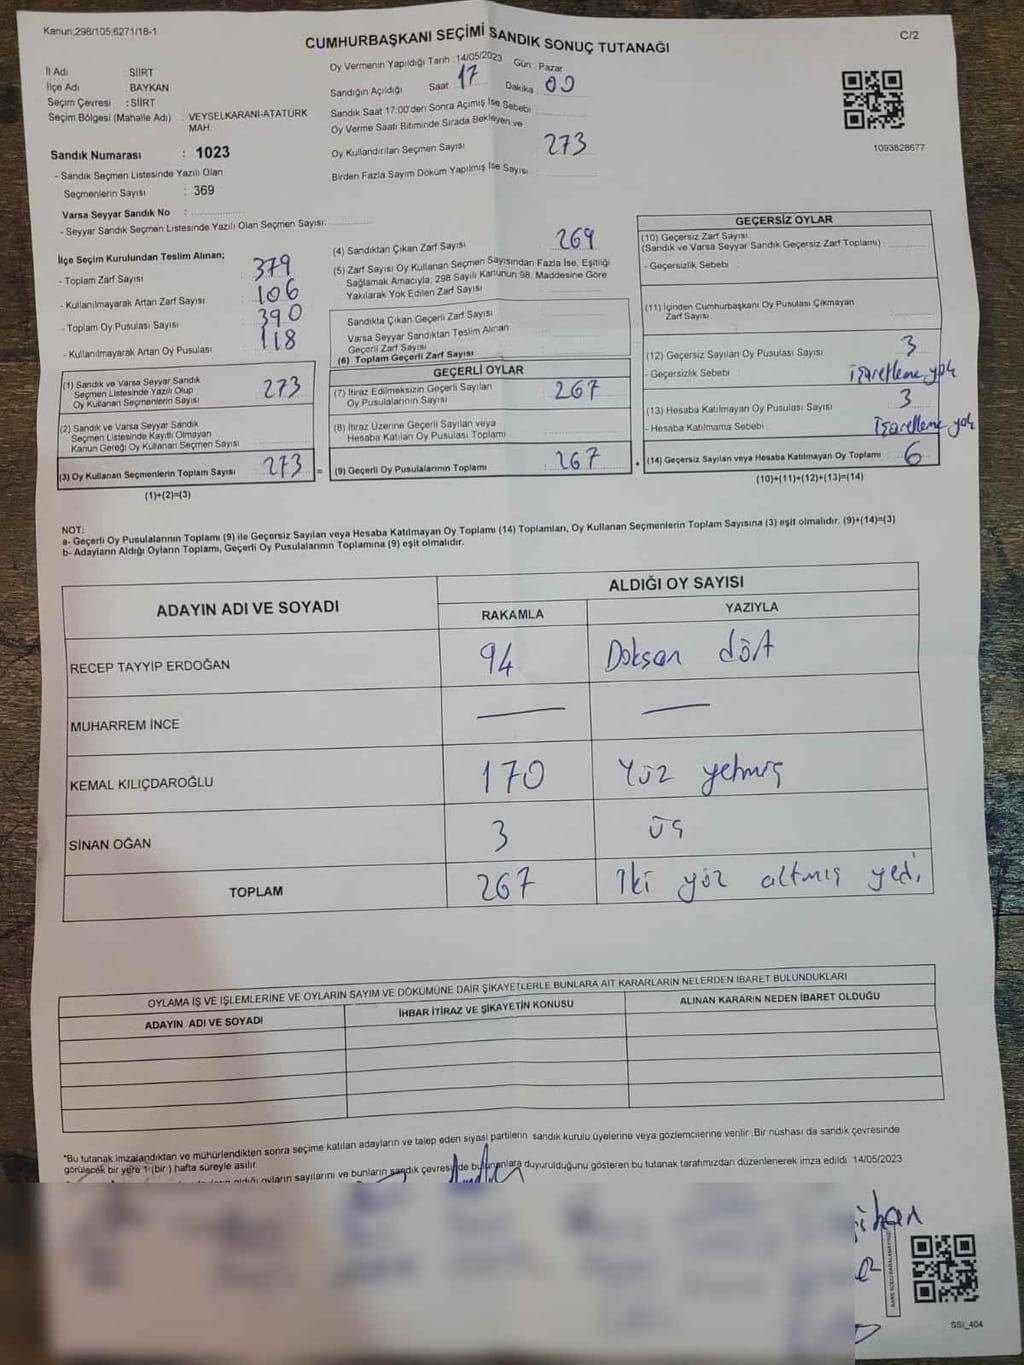 Kanun;298/105;6271/18-1
CUMHURBAŞKANI SEÇİMİ SANDIK SONUÇ TUTANAĞI
C/2
İl Adı : SİİRT
İlçe Adı BAYKAN
Seçim Çevresi : SİİRT
Seçim Bölgesi (Mahalle Adı) : VEYSELKARANİ-ATATÜRK MAH.
Sandık Numarası : 1023
- Sandık Seçmen Listesinde Yazılı Olan
Seçmenlerin Sayısı : 369
Varsa Seyyar Sandık No :
- Seyyar Sandık Seçmen Listesinde Yazılı Olan Seçmen Sayısı:
Oy Vermenin Yapıldığı Tarih :14/05/2023 Gün : Pazar
Sandığın Açıldığı Saat 17 Dakika 00
Sandık Saat 17:00'den Sonra Açımış İse Sebebi
Oy Verme Saati Bitiminde Sırada Bekleyen ve
Oy Kullandırılan Seçmen Sayısı 273
Birden Fazla Sayım Döküm Yapılmış İse Sayısı :
1093628677
İlçe Seçim Kurulundan Teslim Alınan;
- Toplam Zarf Sayısı 379
- Kullanılmayarak Artan Zarf Sayısı 106
- Toplam Oy Pusulası Sayısı 390
- Kullanılmayarak Artan Oy Pusulası 118
(1) Sandık ve Varsa Seyyar Sandık
Seçmen Listesinde Yazılı Olup
Oy Kullanan Seçmenlerin Sayısı 273
(2) Sandık ve Varsa Seyyar Sandık
Seçmen Listesinde Kayıtlı Olmayan
Kanun Gereği Oy Kullanan Seçmen Sayısı
(3) Oy Kullanan Seçmenlerin Toplam Sayısı 273 =
(1)+(2)=(3)
(4) Sandıktan Çıkan Zarf Sayısı 269
(5) Zarf Sayısı Oy Kullanan Seçmen Sayısından Fazla İse, Eşitliği
Sağlamak Amacıyla; 298 Sayılı Kanunun 98. Maddesine Göre
Yakılarak Yok Edilen Zarf Sayısı
Sandıkta Çıkan Geçerli Zarf Sayısı
Varsa Seyyar Sandıktan Teslim Alınan
Geçerli Zarf Sayısı
(6) Toplam Geçerli Zarf Sayısı
GEÇERLİ OYLAR
(7) İtiraz Edilmeksizin Geçerli Sayılan
Oy Pusulalarının Sayısı 267
(8) İtiraz Üzerine Geçerli Sayılan veya
Hesaba Katılan Oy Pusulası Toplamı
(9) Geçerli Oy Pusulalarının Toplamı 267 +
GEÇERSİZ OYLAR
(10) Geçersiz Zarf Sayısı
(Sandık ve Varsa Seyyar Sandık Geçersiz Zarf Toplamı) :
- Geçersizlik Sebebi :
(11) İçinden Cumhurbaşkanı Oy Pusulası Çıkmayan
Zarf Sayısı
(12) Geçersiz Sayılan Oy Pusulası Sayısı 3
- Geçersizlik Sebebi : işaretleme yok
(13) Hesaba Katılmayan Oy Pusulası Sayısı 3
- Hesaba Katılmama Sebebi : işaretleme yok
(14) Geçersiz Sayılan veya Hesaba Katılmayan Oy Toplamı 6
(10)+(11)+(12)+(13)=(14)
NOT:
a- Geçerli Oy Pusulalarının Toplamı (9) ile Geçersiz Sayılan veya Hesaba Katılmayan Oy Toplamı (14) Toplamları, Oy Kullanan Seçmenlerin Toplam Sayısına (3) eşit olmalıdır. (9)+(14)=(3)
b- Adayların Aldığı Oyların Toplamı, Geçerli Oy Pusulalarının Toplamına (9) eşit olmalıdır.
ADAYIN ADI VE SOYADI
ALDIĞI OY SAYISI
RAKAMLA YAZIYLA
RECEP TAYYİP ERDOĞAN 94 Doksan dört
MUHARREM İNCE — —
KEMAL KILIÇDAROĞLU 170 Yüz yetmiş
SİNAN OĞAN 3 üç
TOPLAM 267 İki yüz altmış yedi
OYLAMA İŞ VE İŞLEMLERİNE VE OYLARIN SAYIM VE DÖKÜMÜNE DAİR ŞİKAYETLERLE BUNLARA AİT KARARLARIN NELERDEN İBARET BULUNDUKLARI
ADAYIN ADI VE SOYADI İHBAR İTİRAZ VE ŞİKAYETİN KONUSU ALINAN KARARIN NEDEN İBARET OLDUĞU
*Bu tutanak imzalandıktan ve mühürlendikten sonra seçime katılan adayların ve talep eden siyasi partilerin sandık kurulu üyelerine veya gözlemcilerine verilir .Bir nüshası da sandık çevresinde
görülecek bir yere 1 (bir ) hafta süreyle asılır.
aldığı oyların sayılarını ve bunların sandık çevresinde bulunanlara duyurulduğunu gösteren bu tutanak tarafımızdan düzenlenerek imza edildi 14/05/2023
SSI_404